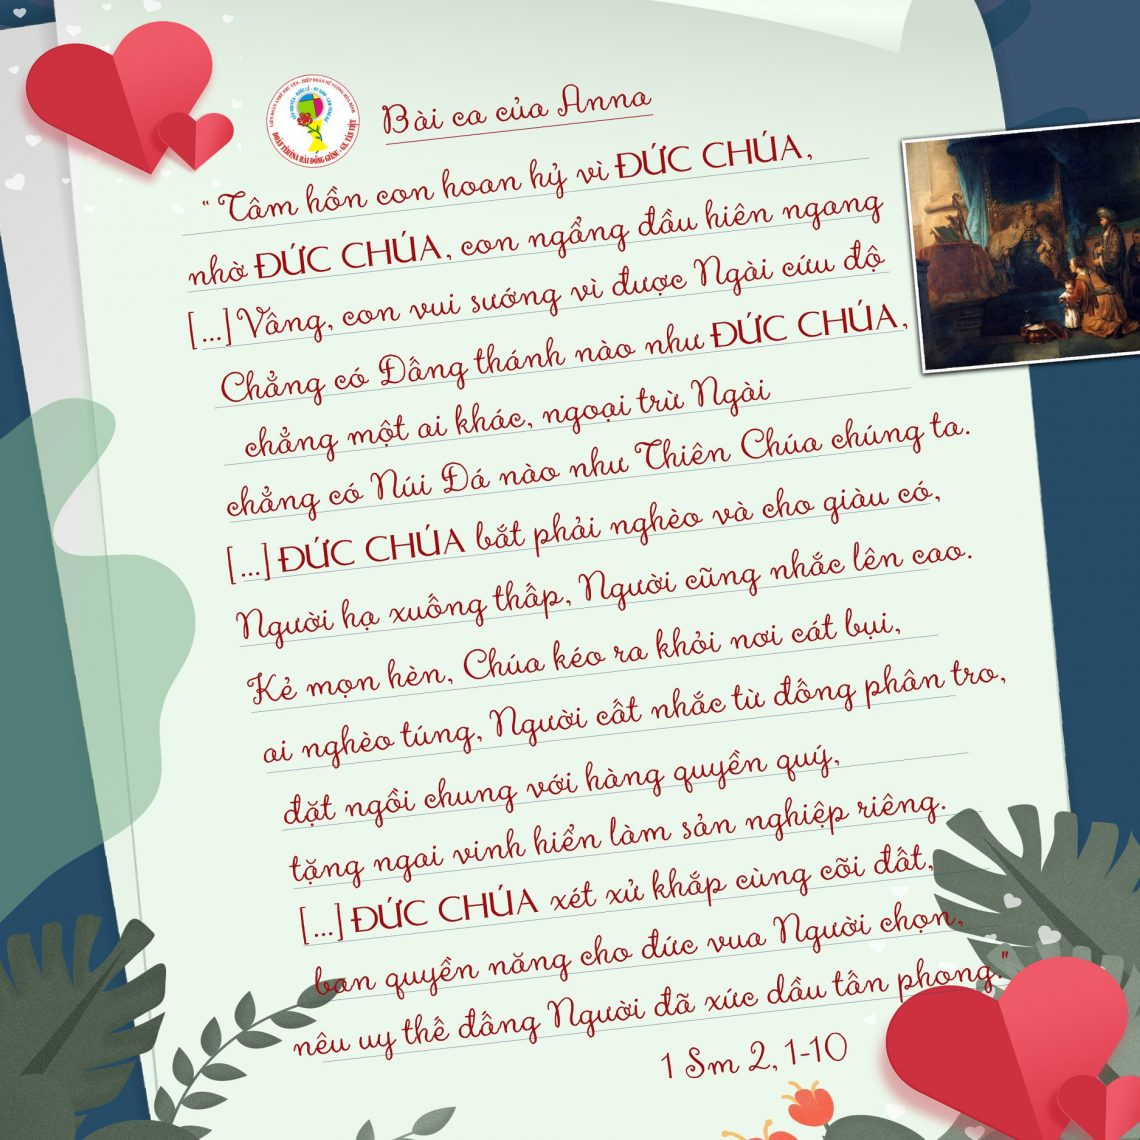 Bài ca của Anna
“ Tâm hồn con hoan hỷ vì ĐỨC CHÚA,
nhờ ĐỨC CHÚA, con ngẩng đầu hiên ngang
[...] Vâng, con vui sướng vì được Ngài cứu độ
Chẳng có Đấng thánh nào như ĐỨC CHÚA,
chẳng một ai khác, ngoại trừ Ngài
chẳng có Núi Đá nào như Thiên Chúa chúng ta.
[...] ĐỨC CHÚA bắt phải nghèo và cho giàu có,
Người hạ xuống thấp, Người cũng nhắc lên cao.
Kẻ mọn hèn, Chúa kéo ra khỏi nơi cát bụi,
ai nghèo túng, Người cất nhắc từ đống phân tro,
đặt ngồi chung với hàng quyền quý,
tặng ngai vinh hiển làm sản nghiệp riêng.
[...] ĐỨC CHÚA xét xử khắp cùng cõi đất,
ban quyền năng cho đức vua Người chọn,
nêu uy thế đấng Người đã xức dầu tấn phong."
1 Sm 2, 1-10